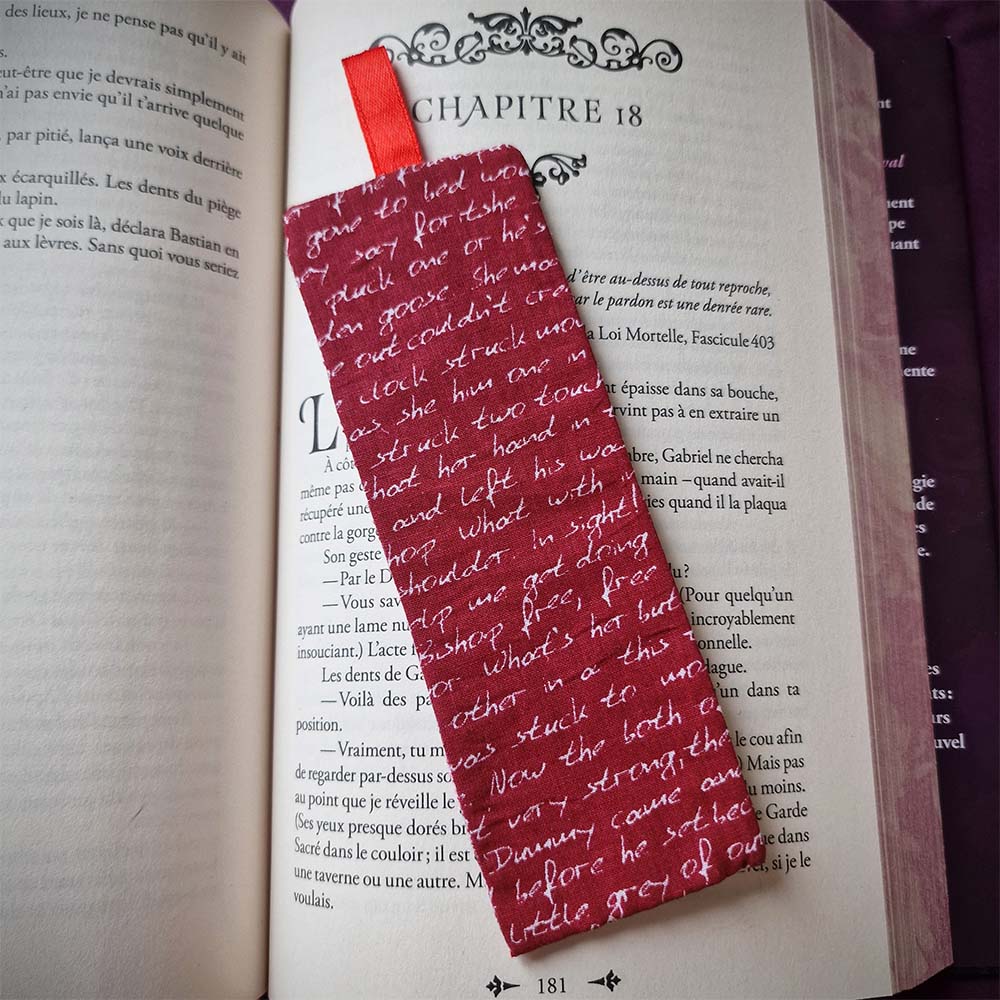 des lieux, je ne pense pas qu'il y ait
s.
eut-être que je devrais simplement
n'ai pas envie qu'il t'arrive quelque
, par pitié, lança une voix derrière
x écarquillés. Les dents du piège
du lapin.
x que je sois là, déclara Bastian en
aux lèvres. Sans quoi vous seriez
CHAPITRE 18
d'être au-dessus de tout reproche,
ar le pardon est une denrée rare.
a Loi Mortelle, Fascicule 403
L
nt épaisse dans sa bouche,
rvint pas à en extraire un
À côt
mbre, Gabriel ne chercha
même pas
main – quand avait-il
récupéré une
ies quand il la plaqua
contre la gorg
Son geste
— Par le D
du ?
— Vous sav
(Pour quelqu'un
ayant une lame nu
incroyablement
insouciant.) L'acte
onnelle.
Les dents de Ga
dague.
— Voilà des pa
'un dans ta
position.
— Vraiment, tu m
le cou afin
de regarder par-dessus so
) Mais pas
au point que je réveille le
u moins.
(Ses yeux presque dorés br
e Garde
Sacré dans le couloir ; il est
ue dans
une taverne ou une autre. M
, si je le
voulais.
181
gone to bed wou
say for itshe
pluck one or he's
den goose. She mo
out couldn't cre
clock struck mou
as, she him one in
struck two touch
hat her hand in t
and left his wa
hop What with
shoulder. In sight!
elp me get doing
Bishop free, free
or What's her but
other in a this t
was stuck to mo
Now the both o
t very strong, the
Dummy came and
before he
little grey of ou
nt
val
ment
pe
uant
ne
ente
gie
de
s
e.
es
ts :
urs
uvel